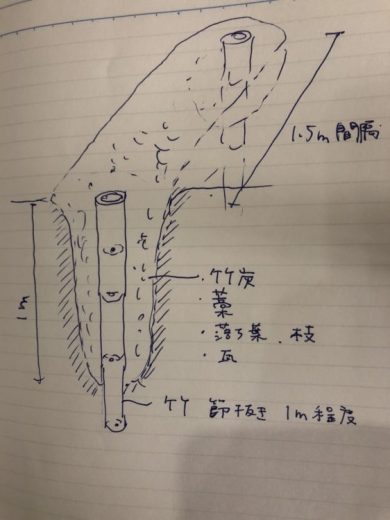 1.5m 間隔
1m
・竹炭
・藁
・落ち葉、枝
・瓦
竹 節抜き 1m程度